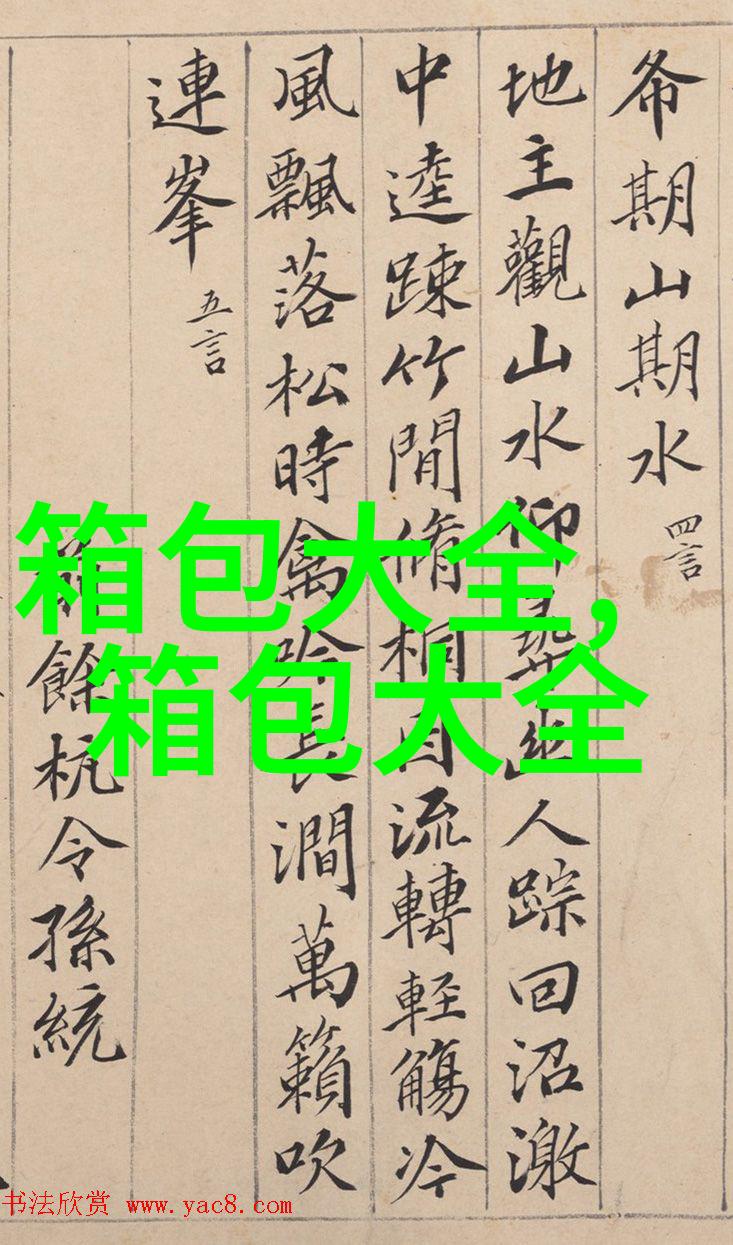 希期山期水 四言
地主觀山水仰尋幽人踪回沼激
中逵踈竹間脩桐因流轉軽觴冷
風飄落松時禽吟長澗萬籟吹
連峯 五言
前餘杭令孫統
箱包大全,
箱包大全
书法欣赏 www.yac8.com